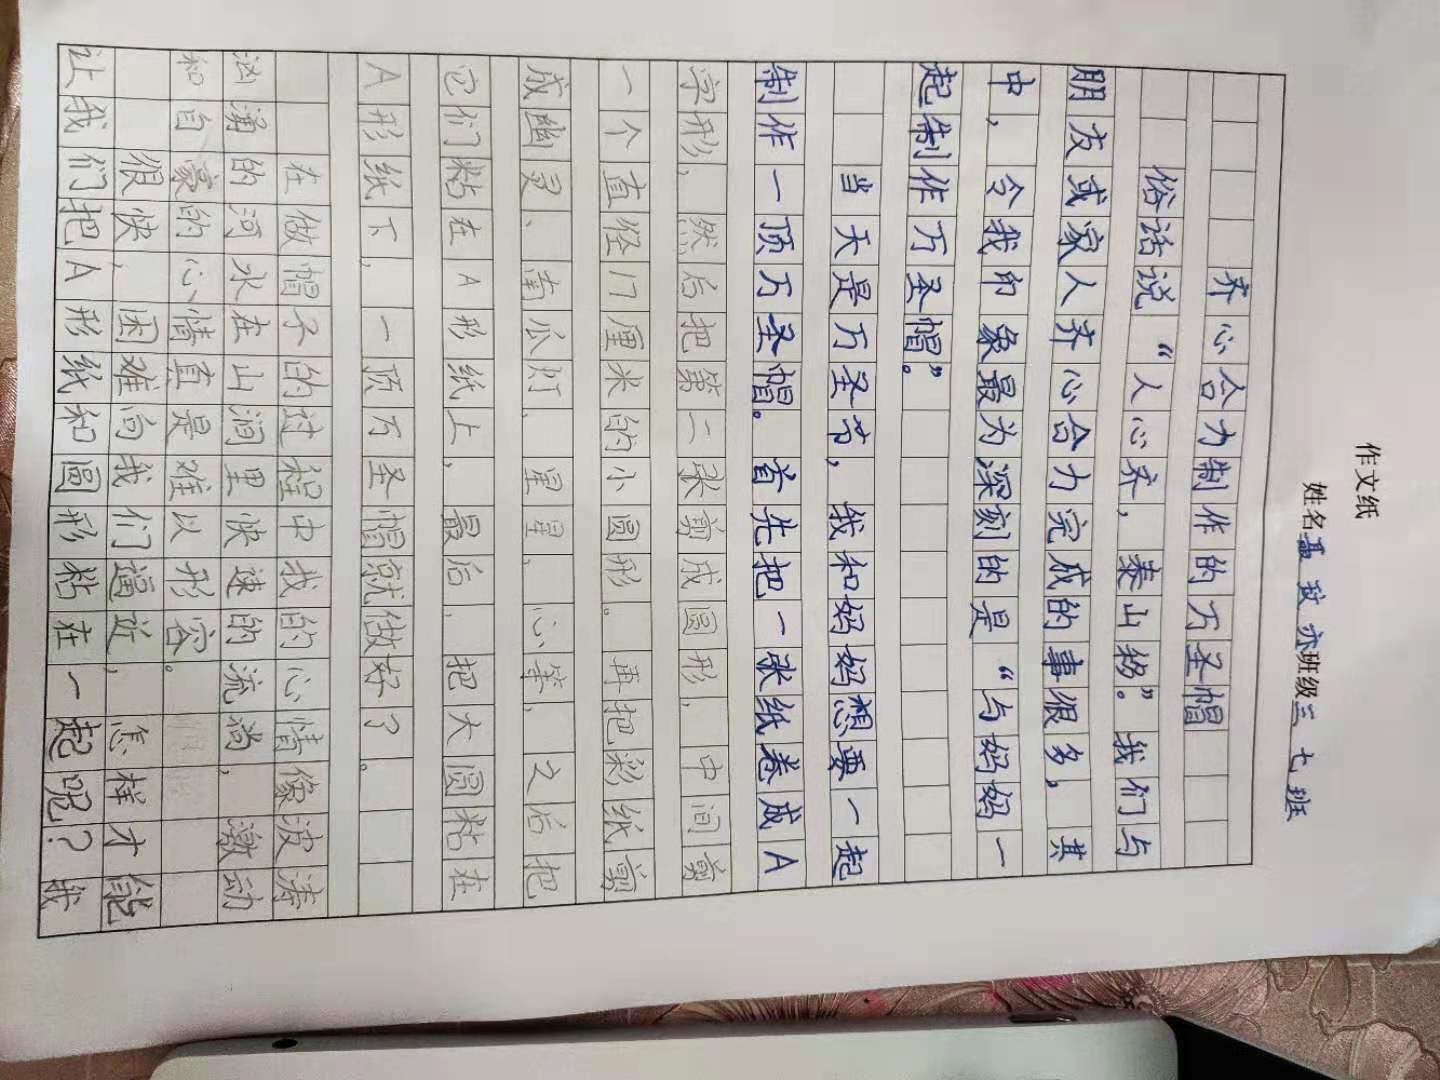 作文纸
姓名 孟致亦班级三七班
齐心合力制作的万圣帽
俗话说“人心齐，泰山移。”我们与
朋友或家人齐心合力完成的事很多，其
中，令我印象最为深刻的是“与妈妈一
起制作万圣帽”。
当天是万圣节，我和妈妈想要一起
制作一顶万圣帽。首先把一张纸卷成A
字形，然后把第二张剪成圆形，中间剪
一个直径17厘米的小圆形。再把彩纸剪
成幽灵、南瓜灯，星星，心等，之后把
它们粘在A形纸上，最后，把大圆粘在
A形纸下，一顶万圣帽就做好了。
在做帽子的过程中我的心情像波涛
汹涌的河水在山涧里快速的流淌，激动
和自豪的心情直是难以形容。
很快，困难向我们逼近，怎样才能
让我们把A形纸和圆形粘在一起呢？我